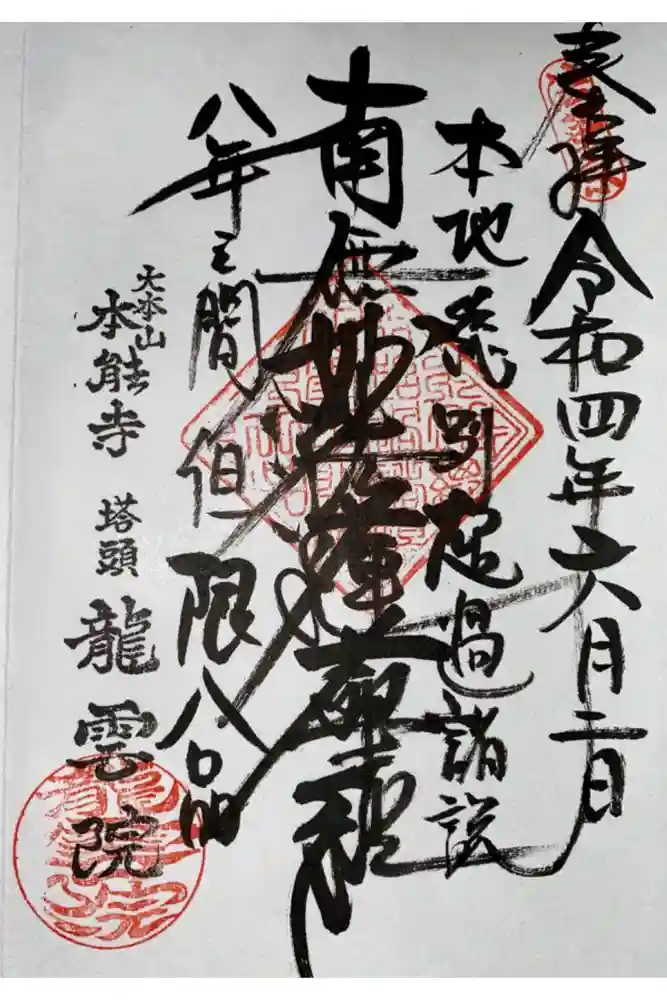 奉拝 令和四年六月二日
本地総別超過諸説
南無妙法蓮華経
八年之間但限八品
大本山
本能寺 塔頭 龍雲院
龍雲院